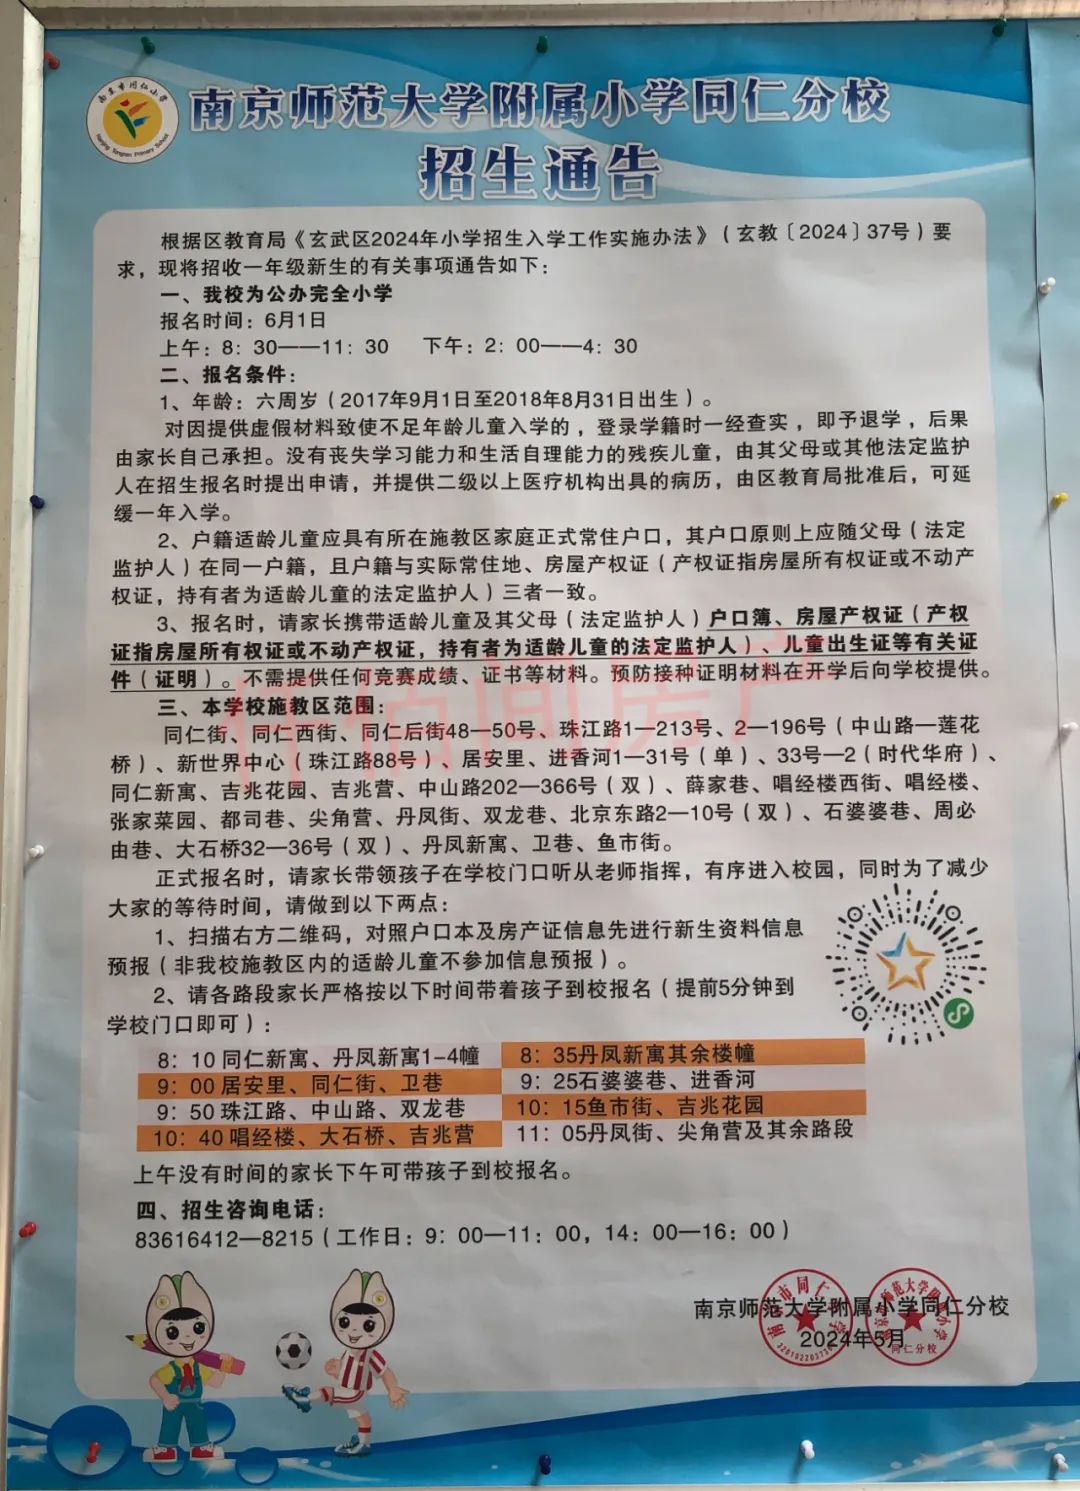 南京市同仁小学
Nanjing Tongren Primary School
南京师范大学附属小学同仁分校
招生通告
根据区教育局《玄武区2024年小学招生入学工作实施办法》（玄教〔2024〕37号）要
求，现将招收一年级新生的有关事项通告如下：
一、我校为公办完全小学
报名时间：6月1日
上午：8：30——11：30 下午：2：00——4：30
二、报名条件：
1、年龄：六周岁（2017年9月1日至2018年8月31日出生）。
对因提供虚假材料致使不足年龄儿童入学的，登录学籍时一经查实，即予退学，后果
由家长自己承担。没有丧失学习能力和生活自理能力的残疾儿童，由其父母或其他法定监护
人在招生报名时提出申请，并提供二级以上医疗机构出具的病历，由区教育局批准后，可延
缓一年入学。
2、户籍适龄儿童应具有所在施教区家庭正式常住户口，其户口原则上应随父母（法定
监护人）在同一户籍，且户籍与实际常住地、房屋产权证（产权证指房屋所有权证或不动产
权证，持有者为适龄儿童的法定监护人）三者一致。
3、报名时，请家长携带适龄儿童及其父母（法定监护人）户口簿、房屋产权证（产权
证指房屋所有权证或不动产权证，持有者为适龄儿童的法定监护人）、儿童出生证等有关证
件（证明）。不需提供任何竞赛成绩、证书等材料。预防接种证明材料在开学后向学校提供。
三、本学校施教区范围：
同仁街、同仁西街、同仁后街48—50号、珠江路1—213号、2—196号（中山路—莲花
桥）、新世界中心（珠江路88号）、居安里、进香河1—31号（单）、33号—2（时代华府）、
同仁新寓、吉兆花园、吉兆营、中山路202—366号（双）、薛家巷、唱经楼西街、唱经楼、
张家菜园、都司巷、尖角营、丹凤街、双龙巷、北京东路2—10号（双）、石婆婆巷、周必
由巷、大石桥32—36号（双）、丹凤新寓、卫巷、鱼市街。
正式报名时，请家长带领孩子在学校门口听从老师指挥，有序进入校园，同时为了减少
大家的等待时间，请做到以下两点：
1、扫描右方二维码，对照户口本及房产证信息先进行新生资料信息
预报（非我校施教区内的适龄儿童不参加信息预报）。
2、请各路段家长严格按以下时间带着孩子到校报名（提前5分钟到
学校门口即可）：
8：10 同仁新寓、丹凤新寓1-4幢 8：35丹凤新寓其余楼幢
9：00 居安里、同仁街、卫巷 9：25石婆婆巷、进香河
9：50 珠江路、中山路、双龙巷 10：15鱼市街、吉兆花园
10：40 唱经楼、大石桥、吉兆营 11：05丹凤街、尖角营及其余路段
上午没有时间的家长下午可带孩子到校报名。
四、招生咨询电话：
83616412—8215（工作日：9：00—11：00，14：00—16：00）
南京师范大学附属小学同仁分校
2024年5月
同仁分校